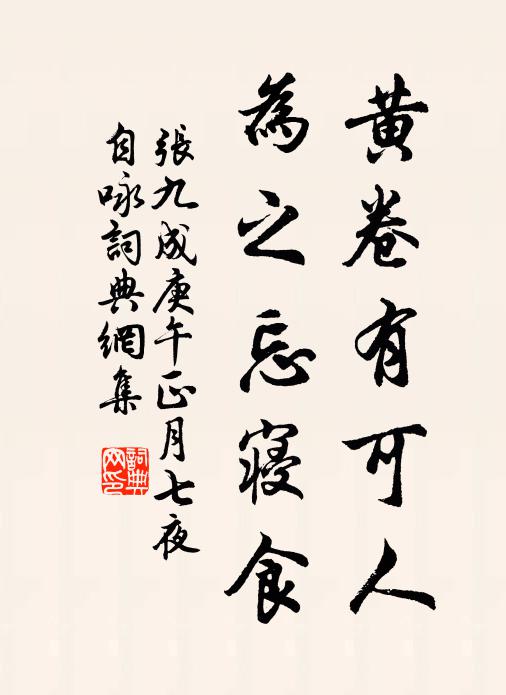 黄卷有可人
為之忘寝食
張九成庚午正月七夜
自咏詞典網集
詞典
网印